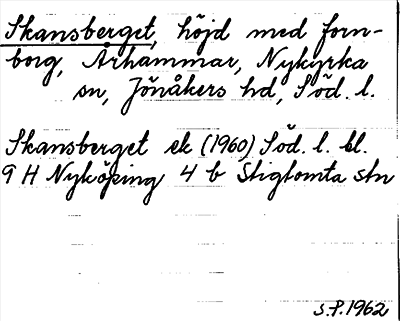 Skansberget, höjd med forn-
borg, Århammar, Nykyrka
sn, Jönåkers hd, Söd. l.
Skansberget ek (1960) Söd. l. bl.
9 H Nyköping 4 b Stigtomta stn
S.P. 1962